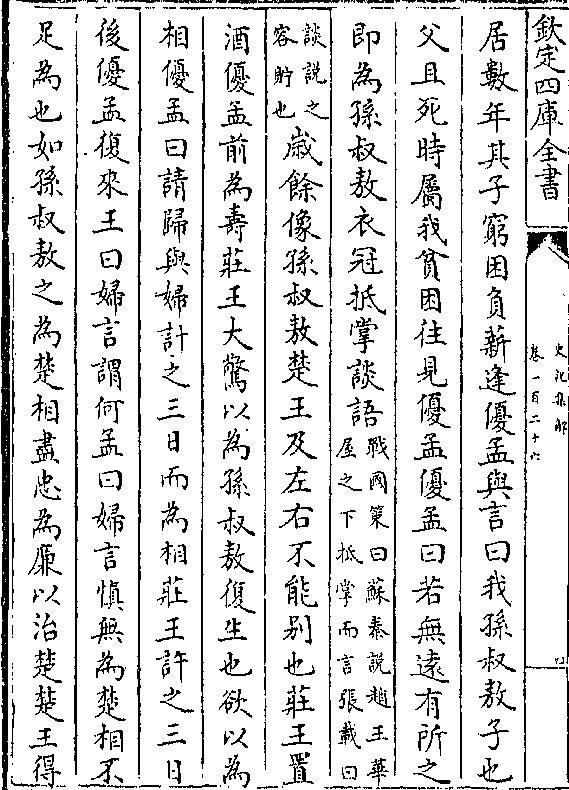 欽定四庫全書
史記集解
卷一百二十六
四
居數年其子窮困負薪逢優孟與言曰我孫叔敖子也
父且死時屬我貧困往見優孟優孟曰若無遠有所之
即為孫叔敖衣冠抵掌談語
戰國策曰蘇秦說趙王華
屋之下抵掌而言張載曰
談說之
容貯也
歲餘像孫叔敖楚王及左右不能别也莊王置
酒優孟前為壽莊王大驚以為孫叔敖復生也欲以為
相優孟曰請歸與婦計之三日而為相莊王許之三日
後優孟復來王曰婦言謂何孟曰婦言慎無為楚相不
足為也如孫叔敖之為楚相盡忠為廉以治楚楚王得